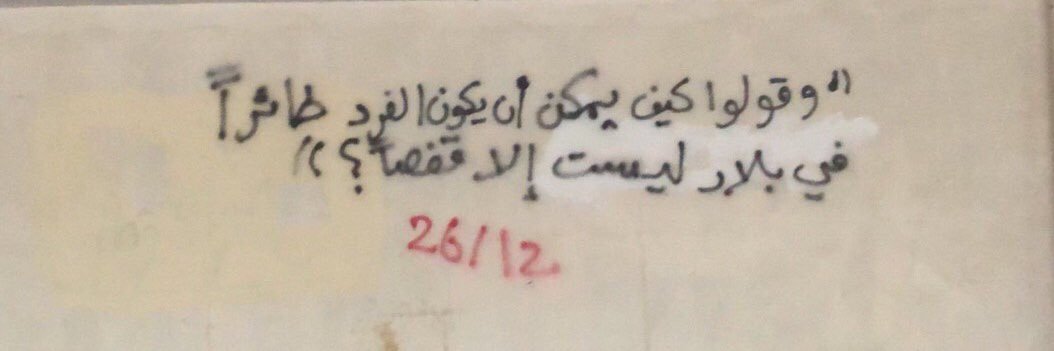 "وقولوا كيف يمكن أن يكون الفرد طائراً
في بلاد ليست إلا قفصاً؟"
26/12